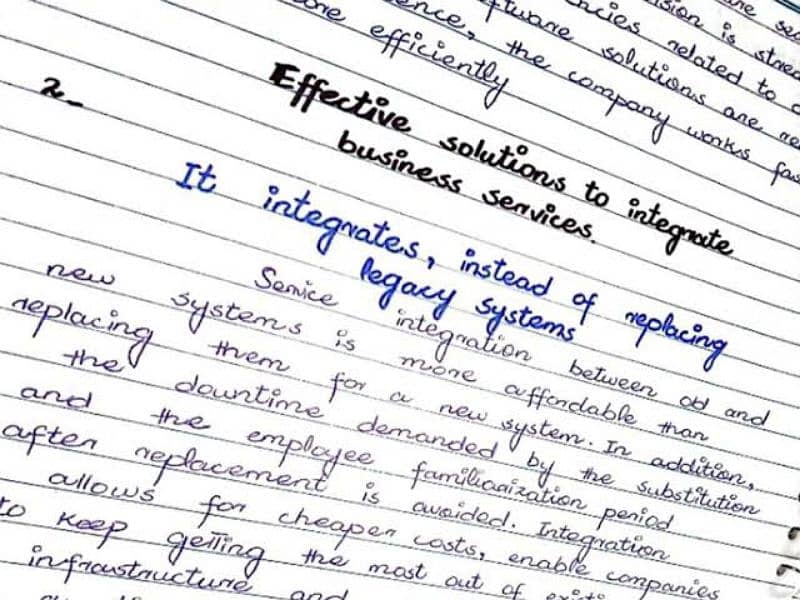 are sea
ision is stored
ncies related to a
ftware solutions are re
ence, the company works fas
ore efficiently
2_
Effective solutions to integrate
business services.
It integrates, instead of replacing
legacy systems
Service integration between old and
new systems is more affordable than
replacing them for a new system. In addition,
the downtime demanded by the substitution
and the employee familiarization period
after replacement is avoided. Integration
allows for cheaper costs, enable companies
to keep getting the most out of existi
infraustructure and